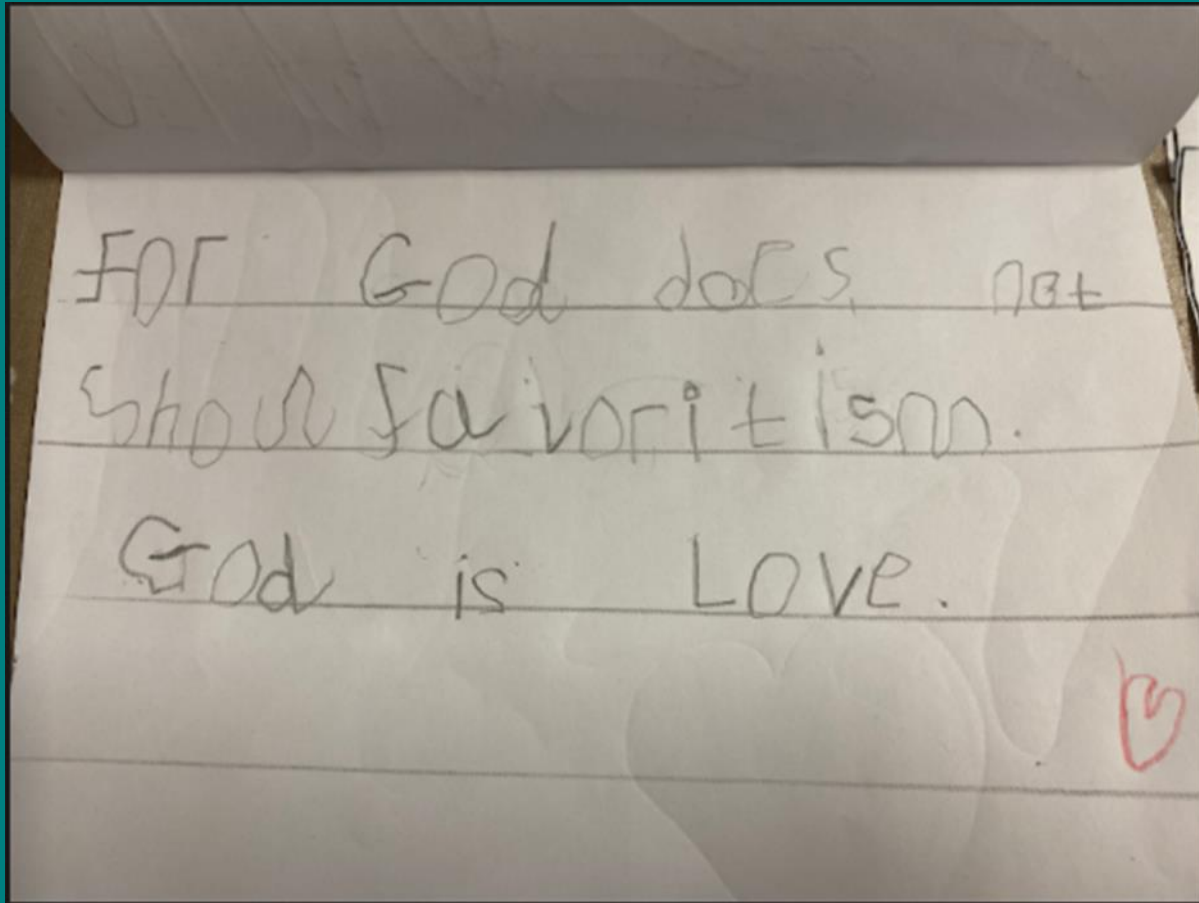 For God does not
Show favoritism.
God is Love.